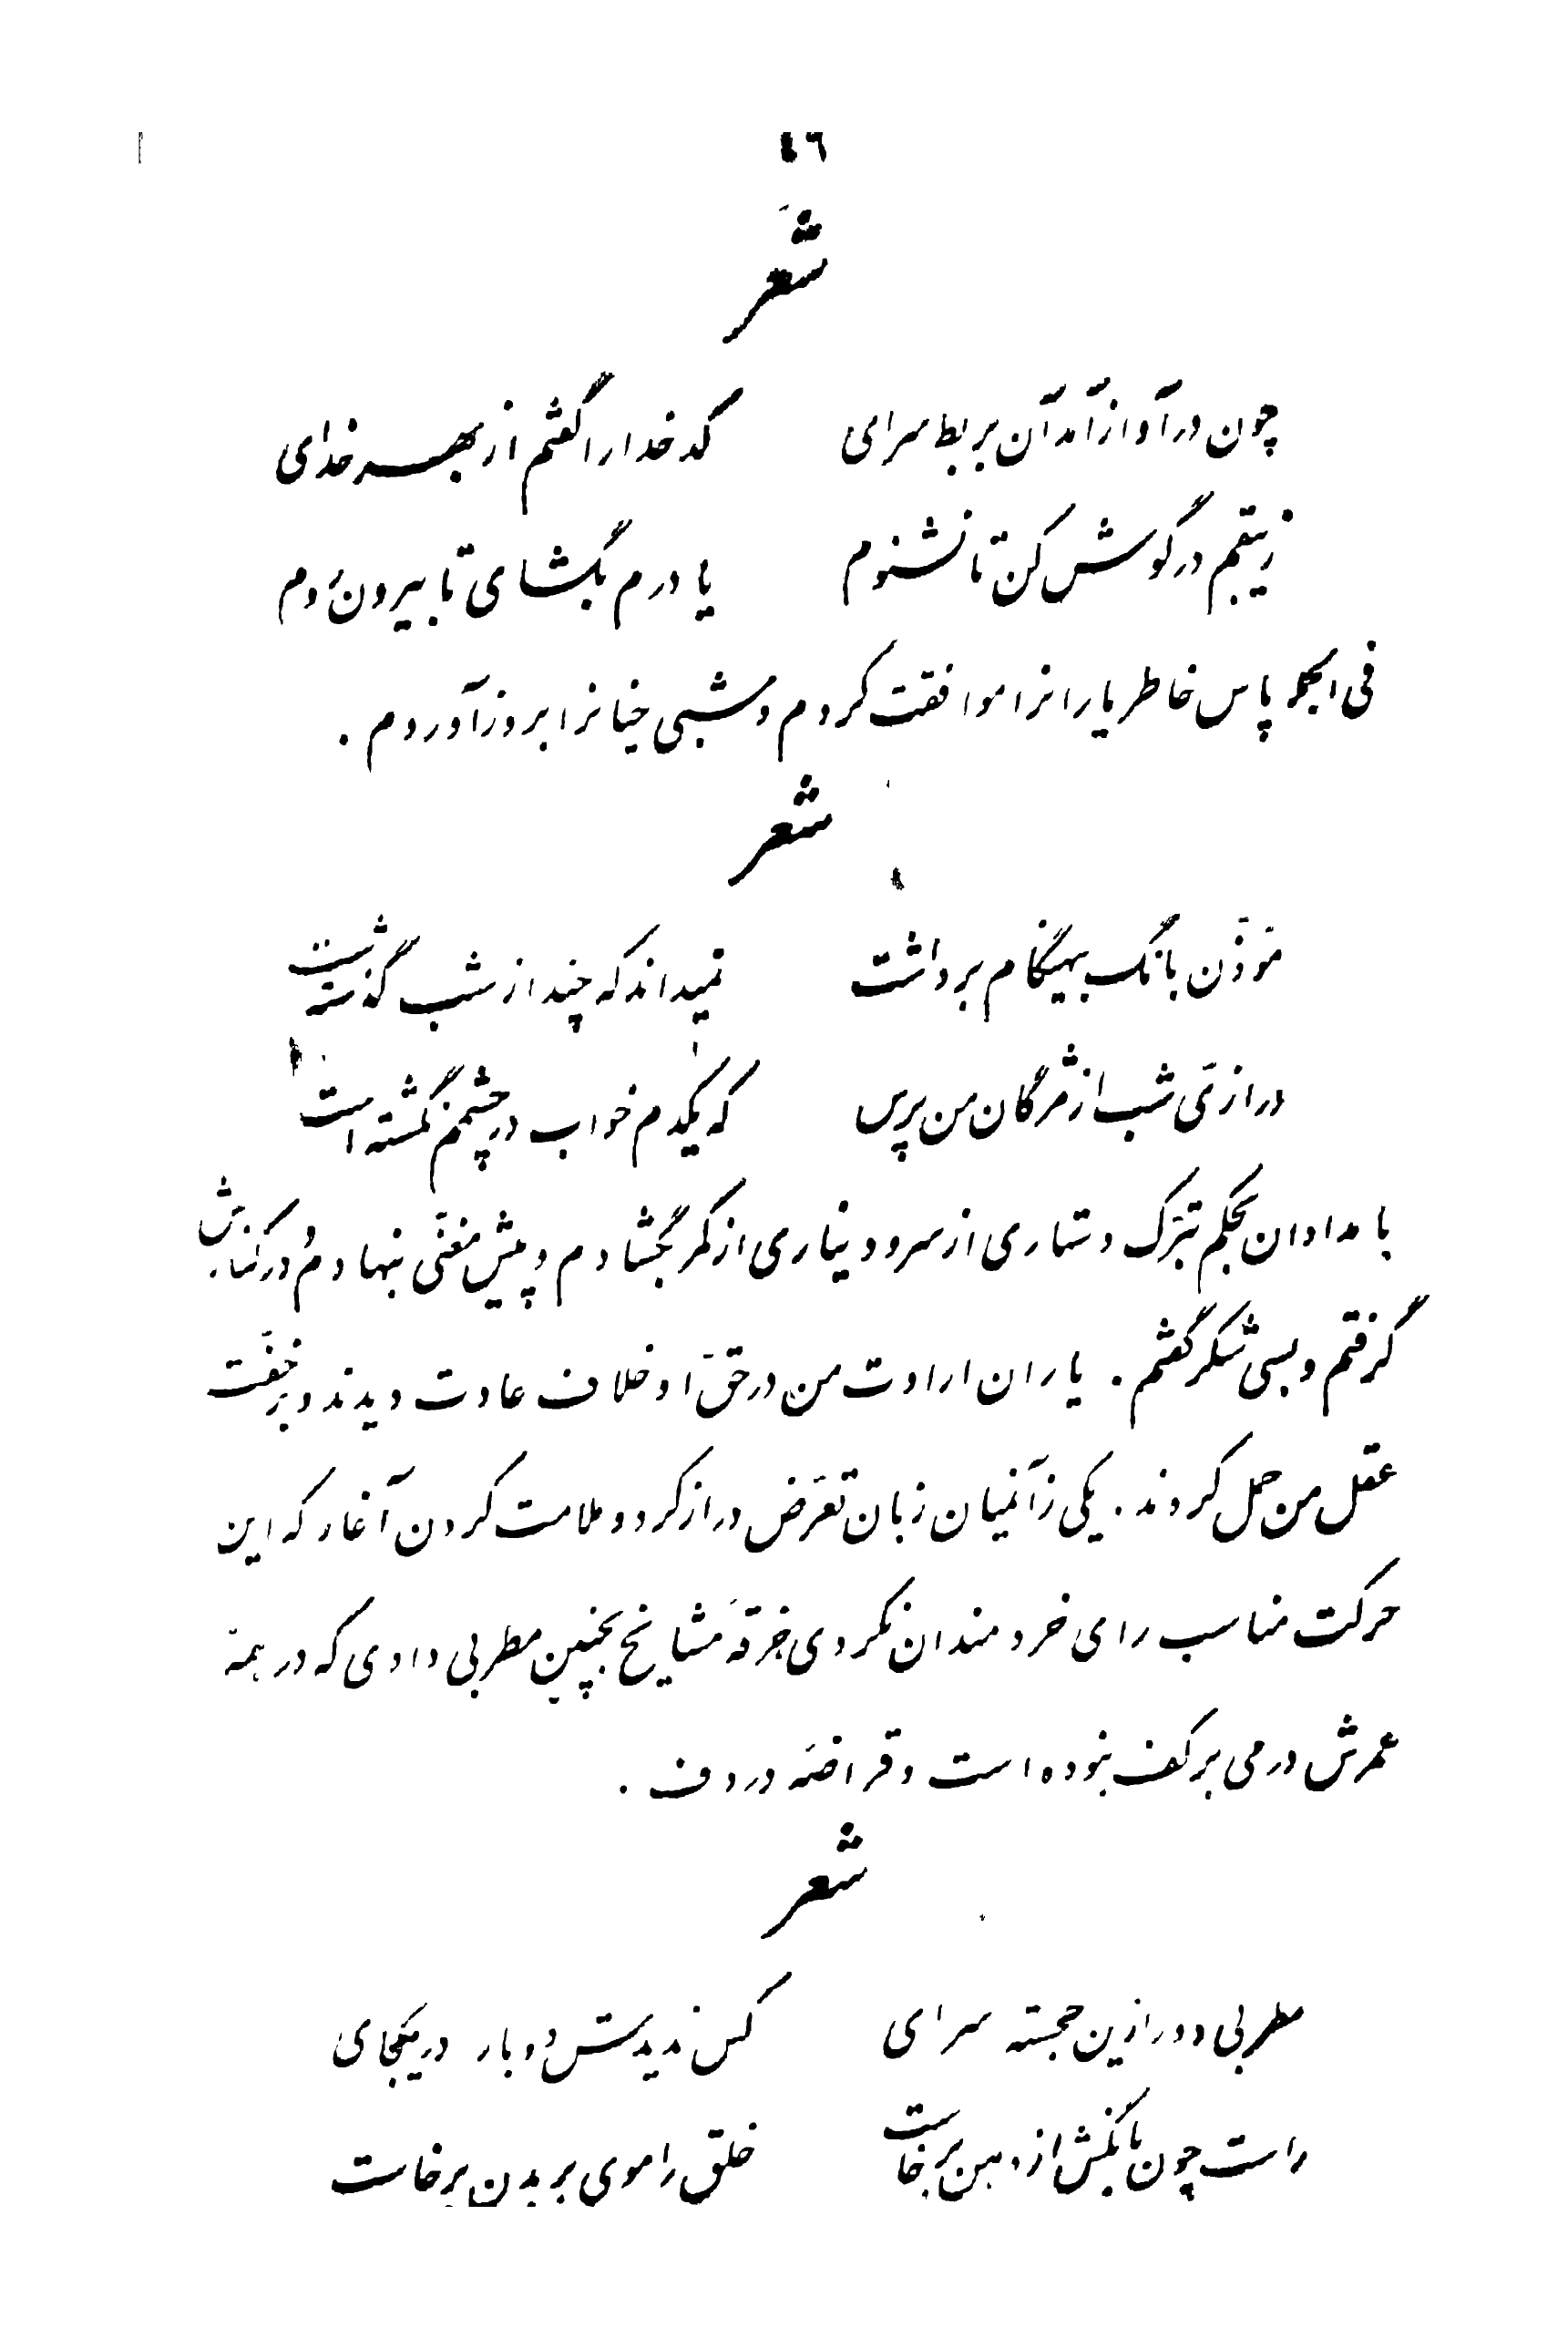 ٤٦
شعر
چون درآواز آمد آن بربط سرای کدخدا را گفتم از بهر خدای
زیبقم در گوش کن تا نشنوم یا درم بگشای تا بیرون رَوم
فی الجمله پاس خاطر یارانرا موافقت کردم و شبی چنانرا بروز آوردم .
شعر
مؤذّن بانگ بهنگام برداشت نمیداند که چند از شب گذشتست
درازیّ شب از مژگان من پرس که یکدم خواب در چشمم نگشته است
بامدادان بحکم تبرّک دستاری از سر و دیناری از کمر بگشادم و پیش مغنّی بنهادم و در کنارش
گرفتم و بسی شکر گفتم . یاران ارادت من در حقّ او خلاف عادت دیدند و بر خفّت
عقل من حمل کردند . یکی زآنمیان زبان تعرّض دراز کرد و ملامت کردن آغاز که این
حرکت مناسب رای خردمندان نکردی خرقهٔ مشایخ بچنین مطربی دادی که در همهٔ
عمرش درمی بر کف نبوده است و قراضهٔ در دف .
شعر
مطربی دور ازین خجسته سرای کس ندیدش دو بار در یکجای
راست چون بانگش از دهن برخاست خلق را موی بر بدن برخاست